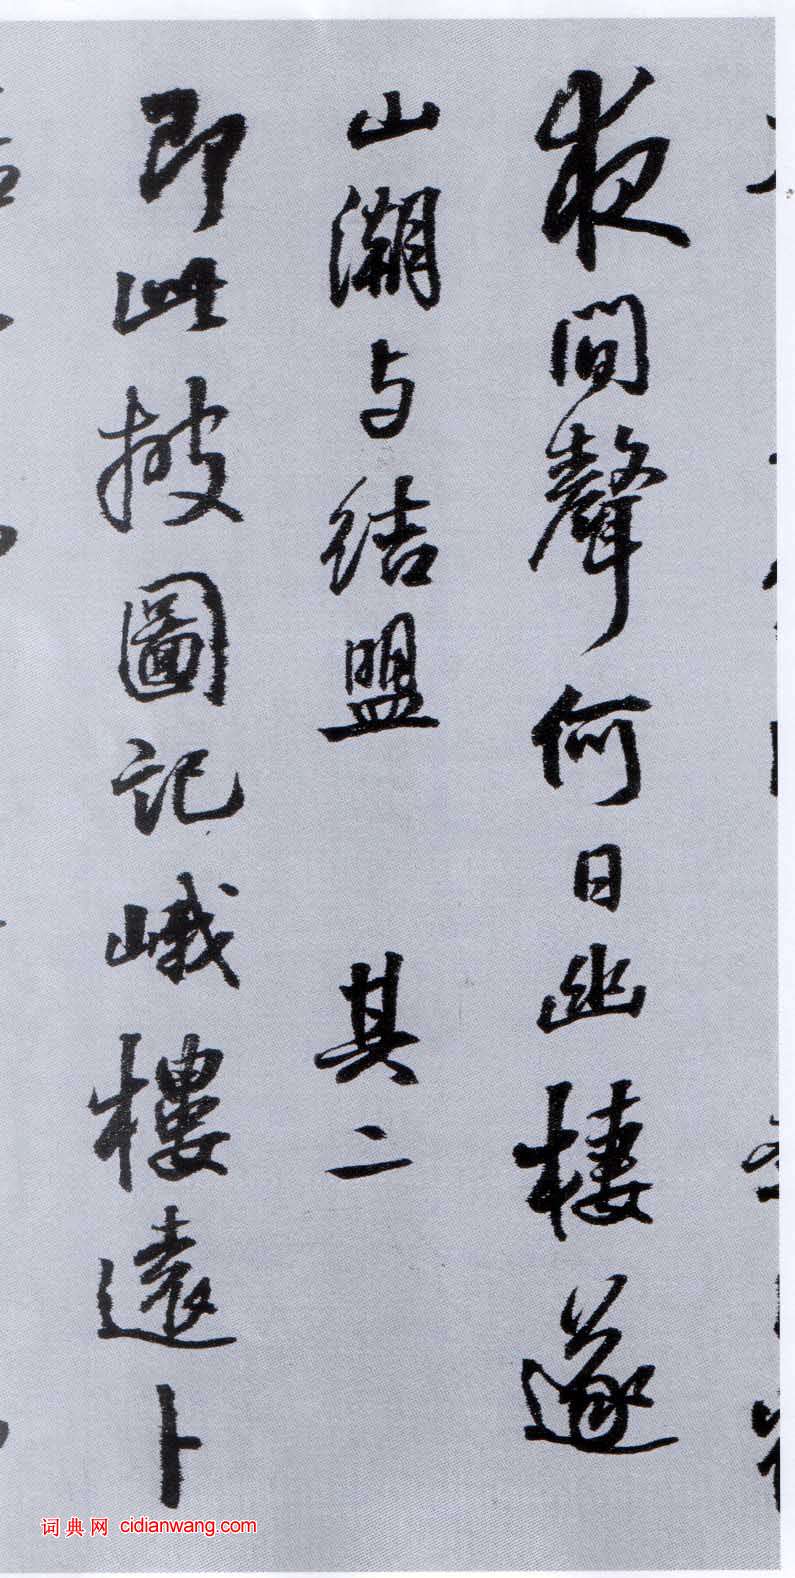 夜間聲何日幽棲遂
山湖与結盟 其二
即此披圖記峨樓遠卜
词典网 cidianwang.com